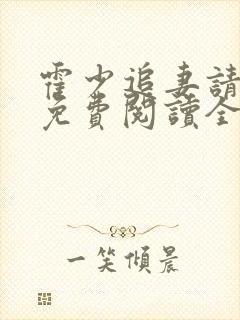 霍少追妻請
免費閱讀全
一笑傾晨